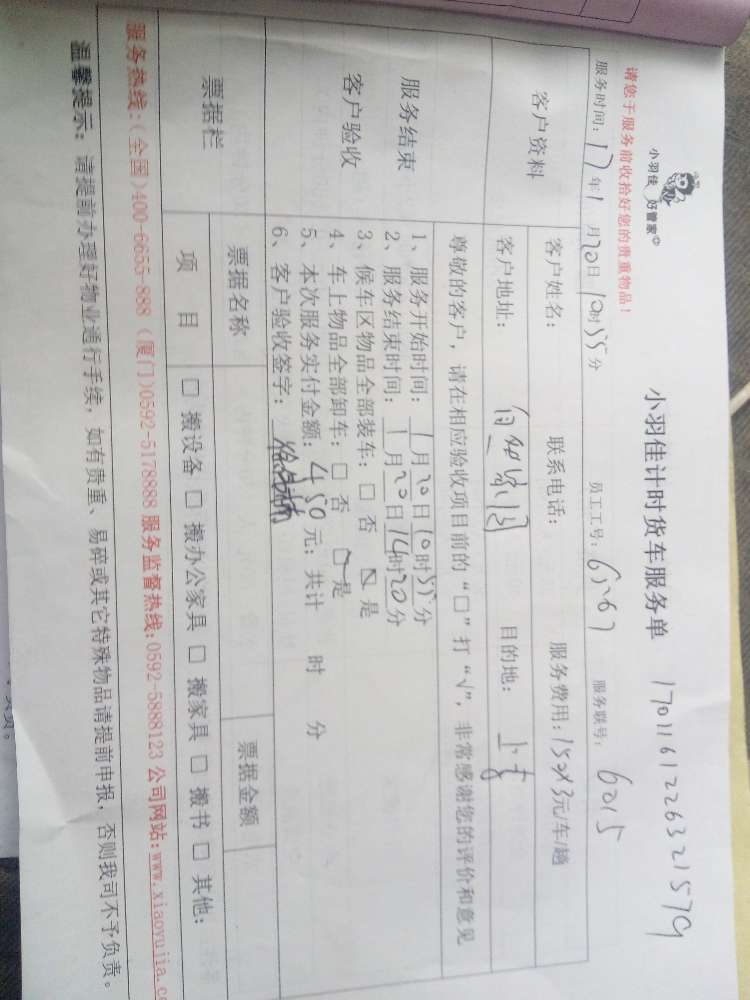 小羽佳 好管家
小羽佳计时货车服务单 1701161226321579
请您于服务前收拾好您的贵重物品！
服务时间：17年1月20日10时35分 员工工号： 服务联号：6015
客户资料
客户姓名： 联系电话： 服务费用：150X3元/车/趟
客户地址： 目的地：
服务结束
客户验收
尊敬的客户，请在相应验收项目前的“□”打“√”，非常感谢您的评价和意见
1、服务开始时间：1月20日10时35分
2、服务结束时间：1月20日14时20分
3、候车区物品全部装车：□ 否 □ 是
4、车上物品全部卸车：□ 否 □ 是
5、本次服务实付金额：450元；共计 时 分
6、客户验收签字：
票据栏
票据名称 票据金额
项 目 □ 搬设备 □ 搬办公家具 □ 搬家具 □ 搬书 □ 其他：
服务热线：(全国)400-6655-888 (厦门)0592-5178888 服务监督热线:0592-5888123 公司网站:www.xiaoyujia.c
温馨提示：请提前办理好物业通行手续，如有贵重、易碎或其它特殊物品请提前申报，否则我司不予负责。